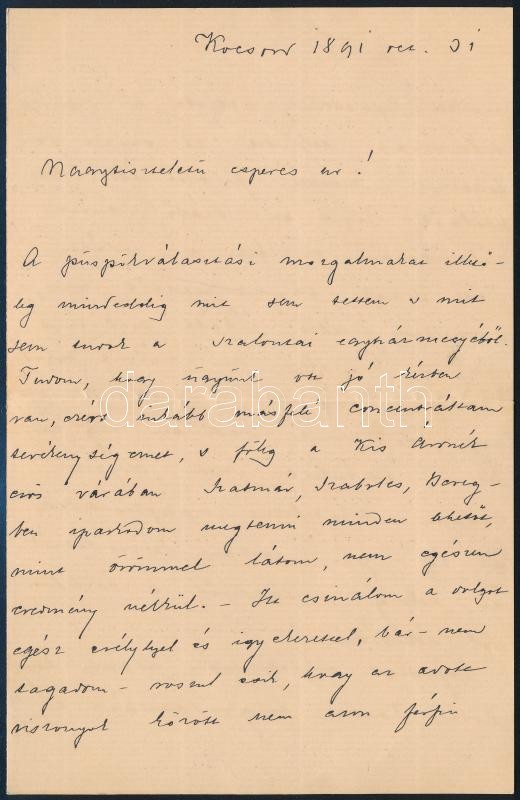 Kocsord 1891 oct. 31
Nagytiszteletü esperes ur!
A püspökválasztási mozgalmakat illető-
leg mindeddig mit sem tettem s mit
sem tudok a szalontai egyházmegyéből.
Tudom, hogy ügyünk ott jó kézben
van, ezért inkább másfelé concentráltam
tevékenységemet, s főleg a Kis Áronék
erős várában Szatmár, Szabolcs, Bereg-
ben iparkodom megtenni minden lehetőt,
mint örömmel látom, nem egészen
eredmény nélkül. – Itt csinálom a dolgot
egész erélylyel és igyekezettel, bár – nem
tagadom – roszul esik, hogy az adott
viszonyok között nem azon férfiu
darabanth